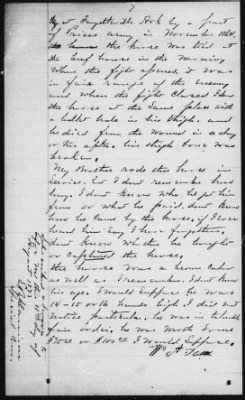 7
at Fayetteville Ark by a part
of Prices army in November 1864.
the horse was tied at
the Beef house in the morning
where the fight opened, it was
in fair range of the enemy
and when the fight closed I saw
the horse at the same place with
a bullet hole in his thigh. and
he died from the wound in a day
or two after. his thigh bone was
broken.
My Brother rode the horse in
service, but I dont remember how
long. I dont know who he got him
from or what he paid, dont know
how he came by the horse, if I ever
heard him say I have forgotten,
dont know whether he bought
or captured the horse.
the horse was a brown color
as well as I remember. I dont know
his age. I would suppose he was
14-15 or 16 hands high I did not
notice particular. he was in tolerable
fair order. he was worth some
or $100.00 I would suppose.
Wm A